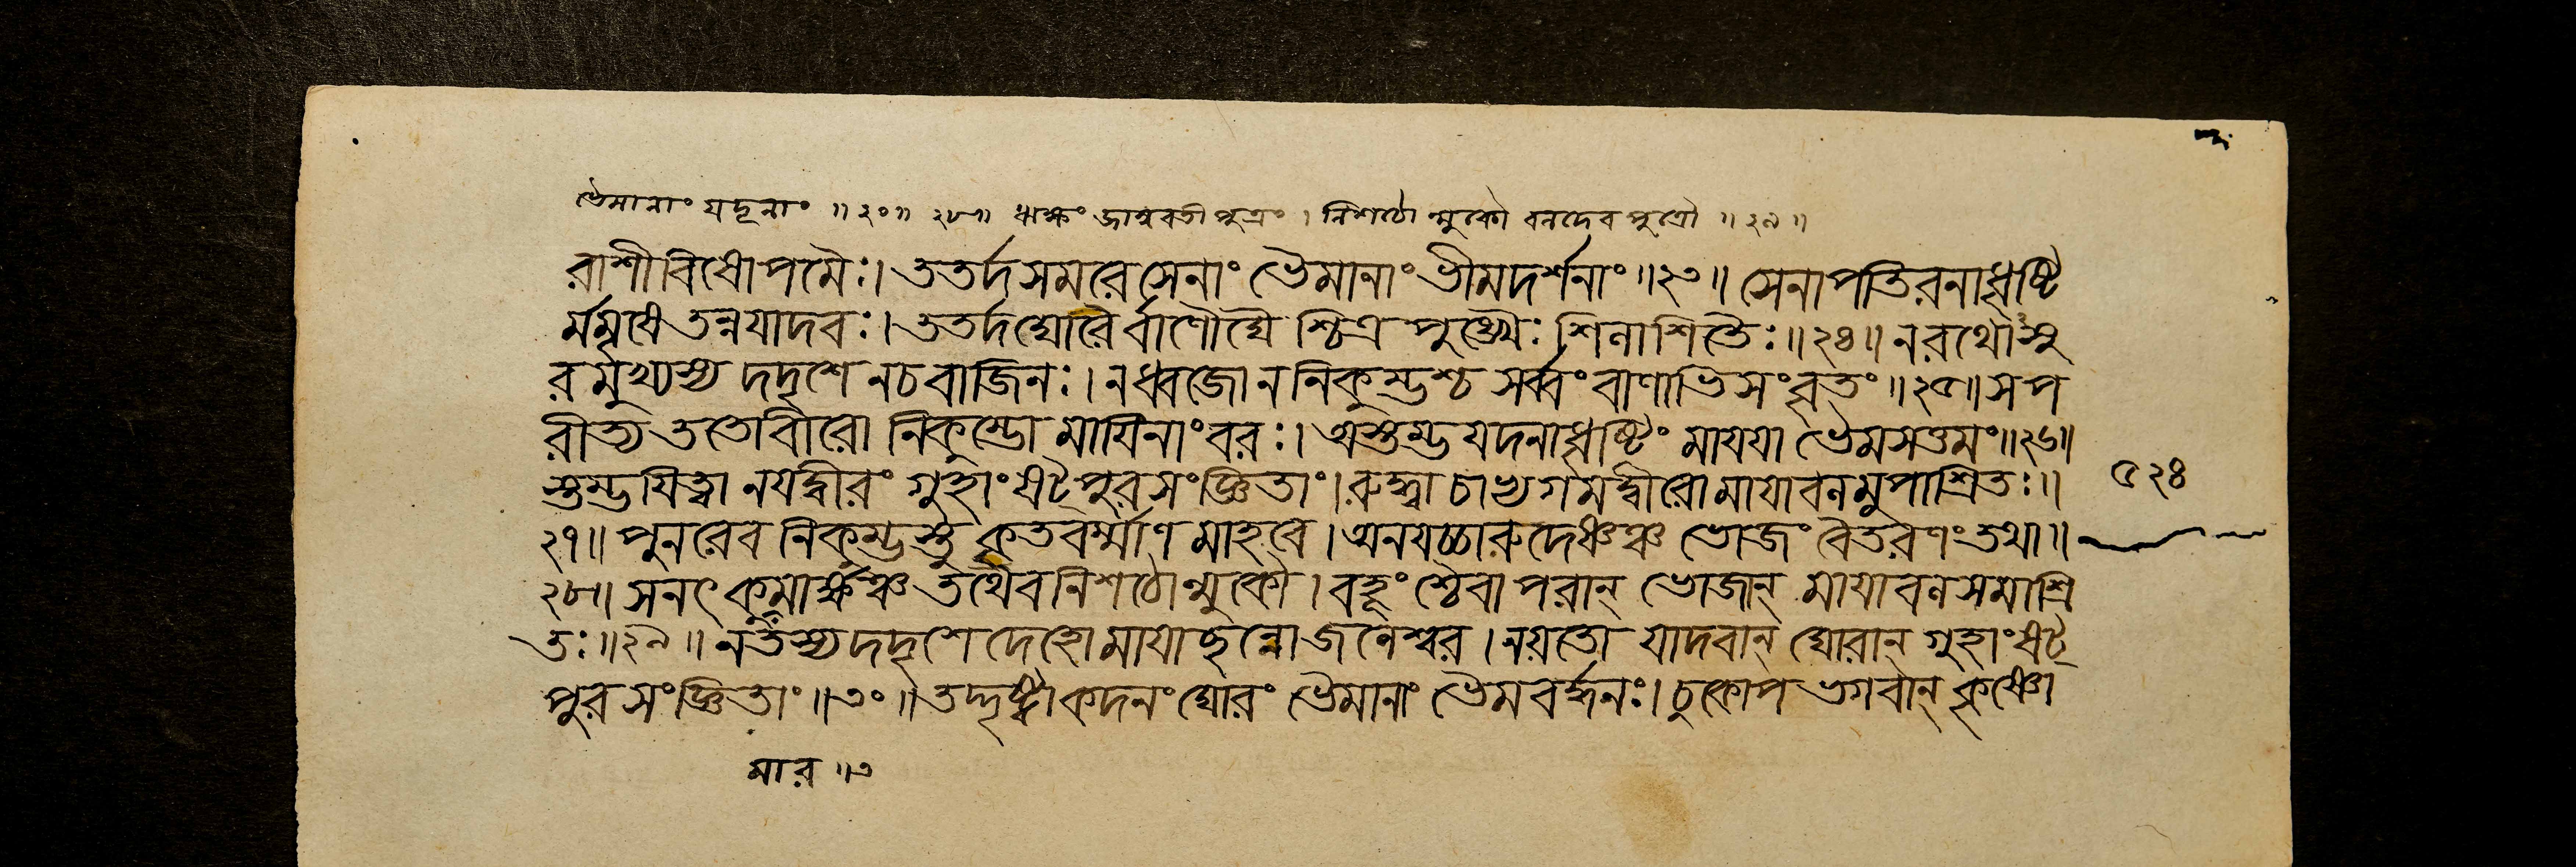 ভৈমানাং যদূনাং ॥২০॥ ২৮॥ ঋক্ষং জাম্ববতীপুত্রং । নিশঠোল্মুকৌ বলদেবপুত্রৌ ॥২৯॥
রাশীবিষোপমৈঃ। ততর্দ সমরে সেনাং ভৈমানাং ভীমদর্শনাং ॥২৩॥ সেনাপতিরনাধৃষ্টি
র্মমৃষে তন্নযাদবঃ। ততর্দ ঘোরৈর্বাণৌঘৈ শ্চিত্রপুঙ্খৈঃ শিলাশিতৈঃ॥২৪॥ নরথোসু
রমুখ্যস্য দদৃশে নচবাজিনঃ। নধ্বজো ননিকুম্ভশ্চ সর্ব্বং বাণাভিসংবৃতং ॥২৫॥ সপ
রীত্য ততোবীরো নিকুম্ভো মাযিনাং বরঃ। অস্তম্ভযদনাধৃষ্টিং মাযযা ভৈমসত্তমং॥২৬॥
স্তম্ভযিত্বা নযদ্বীরং গুহাং ষট্পুরসংজ্ঞিতাং। রুদ্ধ্বা চাভ্যগমদ্বীরো মাযাবলমুপাশ্রিতঃ॥
২৭॥ পুনরেব নিকুম্ভস্তু কৃতবর্ম্মাণ মাহবে। অনযচ্চারুদেষ্ণঞ্চ ভোজং বৈতরণং তথা॥
২৮॥ সনৎকুমারমৃক্ষঞ্চ তথৈব নিশঠোল্মুকৌ। বহূংশ্চৈবাপরান্ ভোজান্ মাযাবলসমাশ্রি
তঃ॥২৯॥ নতস্য দদৃশে দেহো মাযাছন্নো জনেশ্বর। নযতো যাদবান্ ঘোরান্ গুহাং ষট্
পুরসংজ্ঞিতাং॥৩০॥ তদ্দৃষ্ট্বা কদনং ঘোরং ভৈমানাং ভৈমবর্দ্ধনঃ। চুকোপ ভগবান্ কৃষ্ণো
৫২৪
মার ॥৩